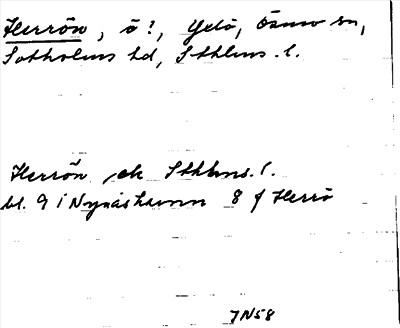 Herrön, ö?, Yxlö, Ösmo sn,
Sotholms hd, Sthlms. l.
Herrön, ek Sthlms. l.
bl. 9 i Nynäshamn 8 f Herrö
7N58